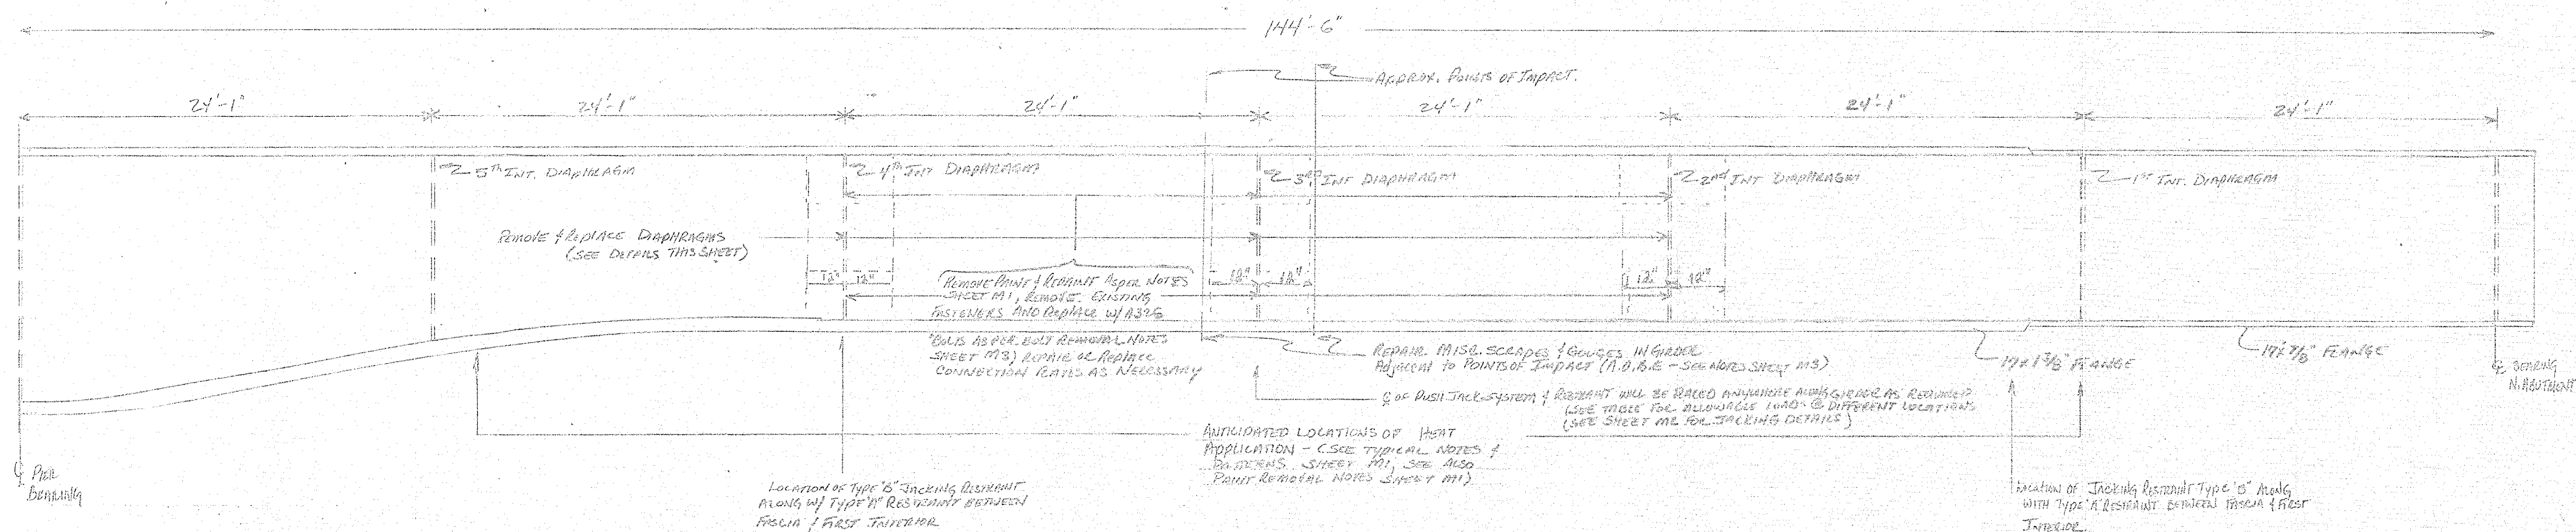 144'-6"
APPROX. POINTS OF IMPACT.
24'-1" 24'-1" 24'-1" 24'-1" 24'-1" 24'-1"
5TH INT. DIAPHRAGM
4TH INT DIAPHRAGM
3RD INT DIAPHRAGM
2ND INT DIAPHRAGM
1ST INT. DIAPHRAGM
REMOVE & REPLACE DIAPHRAGMS
(SEE DETAILS THIS SHEET)
12" 12"
12" 12"
12" 12"
REMOVE PAINT & REPAINT AS PER NOTES
SHEET M1, REMOVE EXISTING
FASTENERS AND REPLACE W/ A325
BOLTS AS PER BOLT REMOVAL NOTES
SHEET M3) REPAIR OR REPLACE
CONNECTION PLATES AS NECESSARY
REPAIR MISC. SCRAPES & GOUGES IN GIRDER
ADJACENT TO POINTS OF IMPACT (A.O.B.E - SEE NOTES SHEET M3)
17 x 1 3/8" FLANGE
17 x 7/8" FLANGE
℄ BEARING
N. ABUTMENT
℄ OF PUSH JACK SYSTEM & RESTRAINT WILL BE PLACED ANYWHERE ALONG GIRDER AS REQUIRED
(SEE TABLE FOR ALLOWABLE LOADS @ DIFFERENT LOCATIONS
(SEE SHEET M2 FOR JACKING DETAILS)
ANTICIPATED LOCATIONS OF HEAT
APPLICATION - (SEE TYPICAL NOTES &
PATTERNS SHEET M1, SEE ALSO
PAINT REMOVAL NOTES SHEET M1)
℄ PIER
BEARING
LOCATION OF TYPE "B" JACKING RESTRAINT
ALONG W/ TYPE "A" RESTRAINT BETWEEN
FASCIA & FIRST INTERIOR
LOCATION OF JACKING RESTRAINT TYPE "B" ALONG
WITH TYPE "A" RESTRAINT BETWEEN FASCIA & FIRST
INTERIOR.